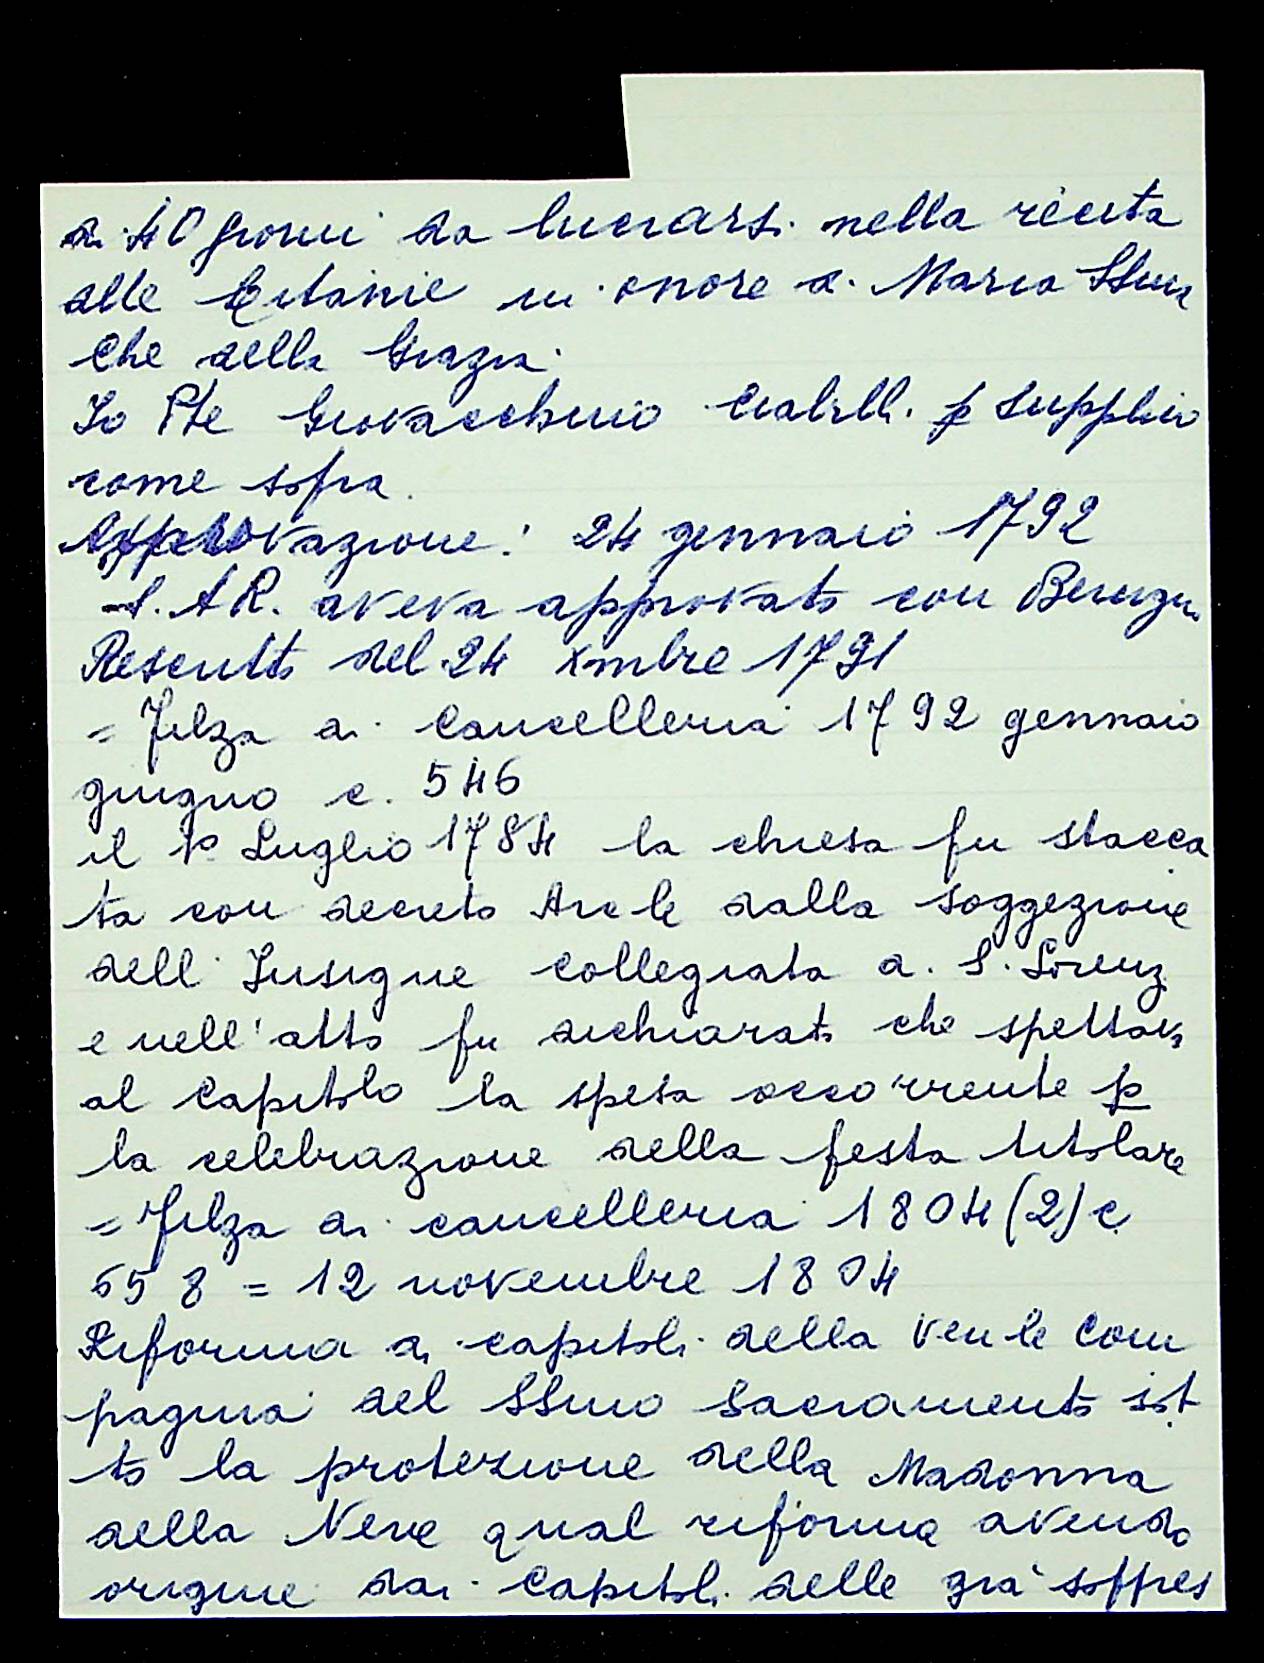 di 40 giorni da lucrarsi nella recita
alle Litanie in onore di Maria SSma
che della Grazia
Io Pte Giovacchino p supplico
come sopra.
Approvazione: 24 gennaio 1792
S. A R. aveva approvato con Benigno
Rescritto del 24 Xmbre 1791
= Filza di Cancelleria 1792 gennaio
giugno c. 546
il 1° Luglio 1784 la chiesa fu stacca
ta con decreto Arcle dalla soggezione
dell' Insigne collegiata di S. Lorenz
e nell'atto fu dichiarato che spettava
al Capitolo la spesa occorrente p
la celebrazione della festa titolare
= Filza di cancelleria 1804 (2) c.
658 = 12 novembre 1804
Riforma di capitoli della Venle Com
pagnia del SSmo Sacramento sot
to la protezione della Madonna
della Neve qual riforma avendo
origine dai Capitoli delle già soppres